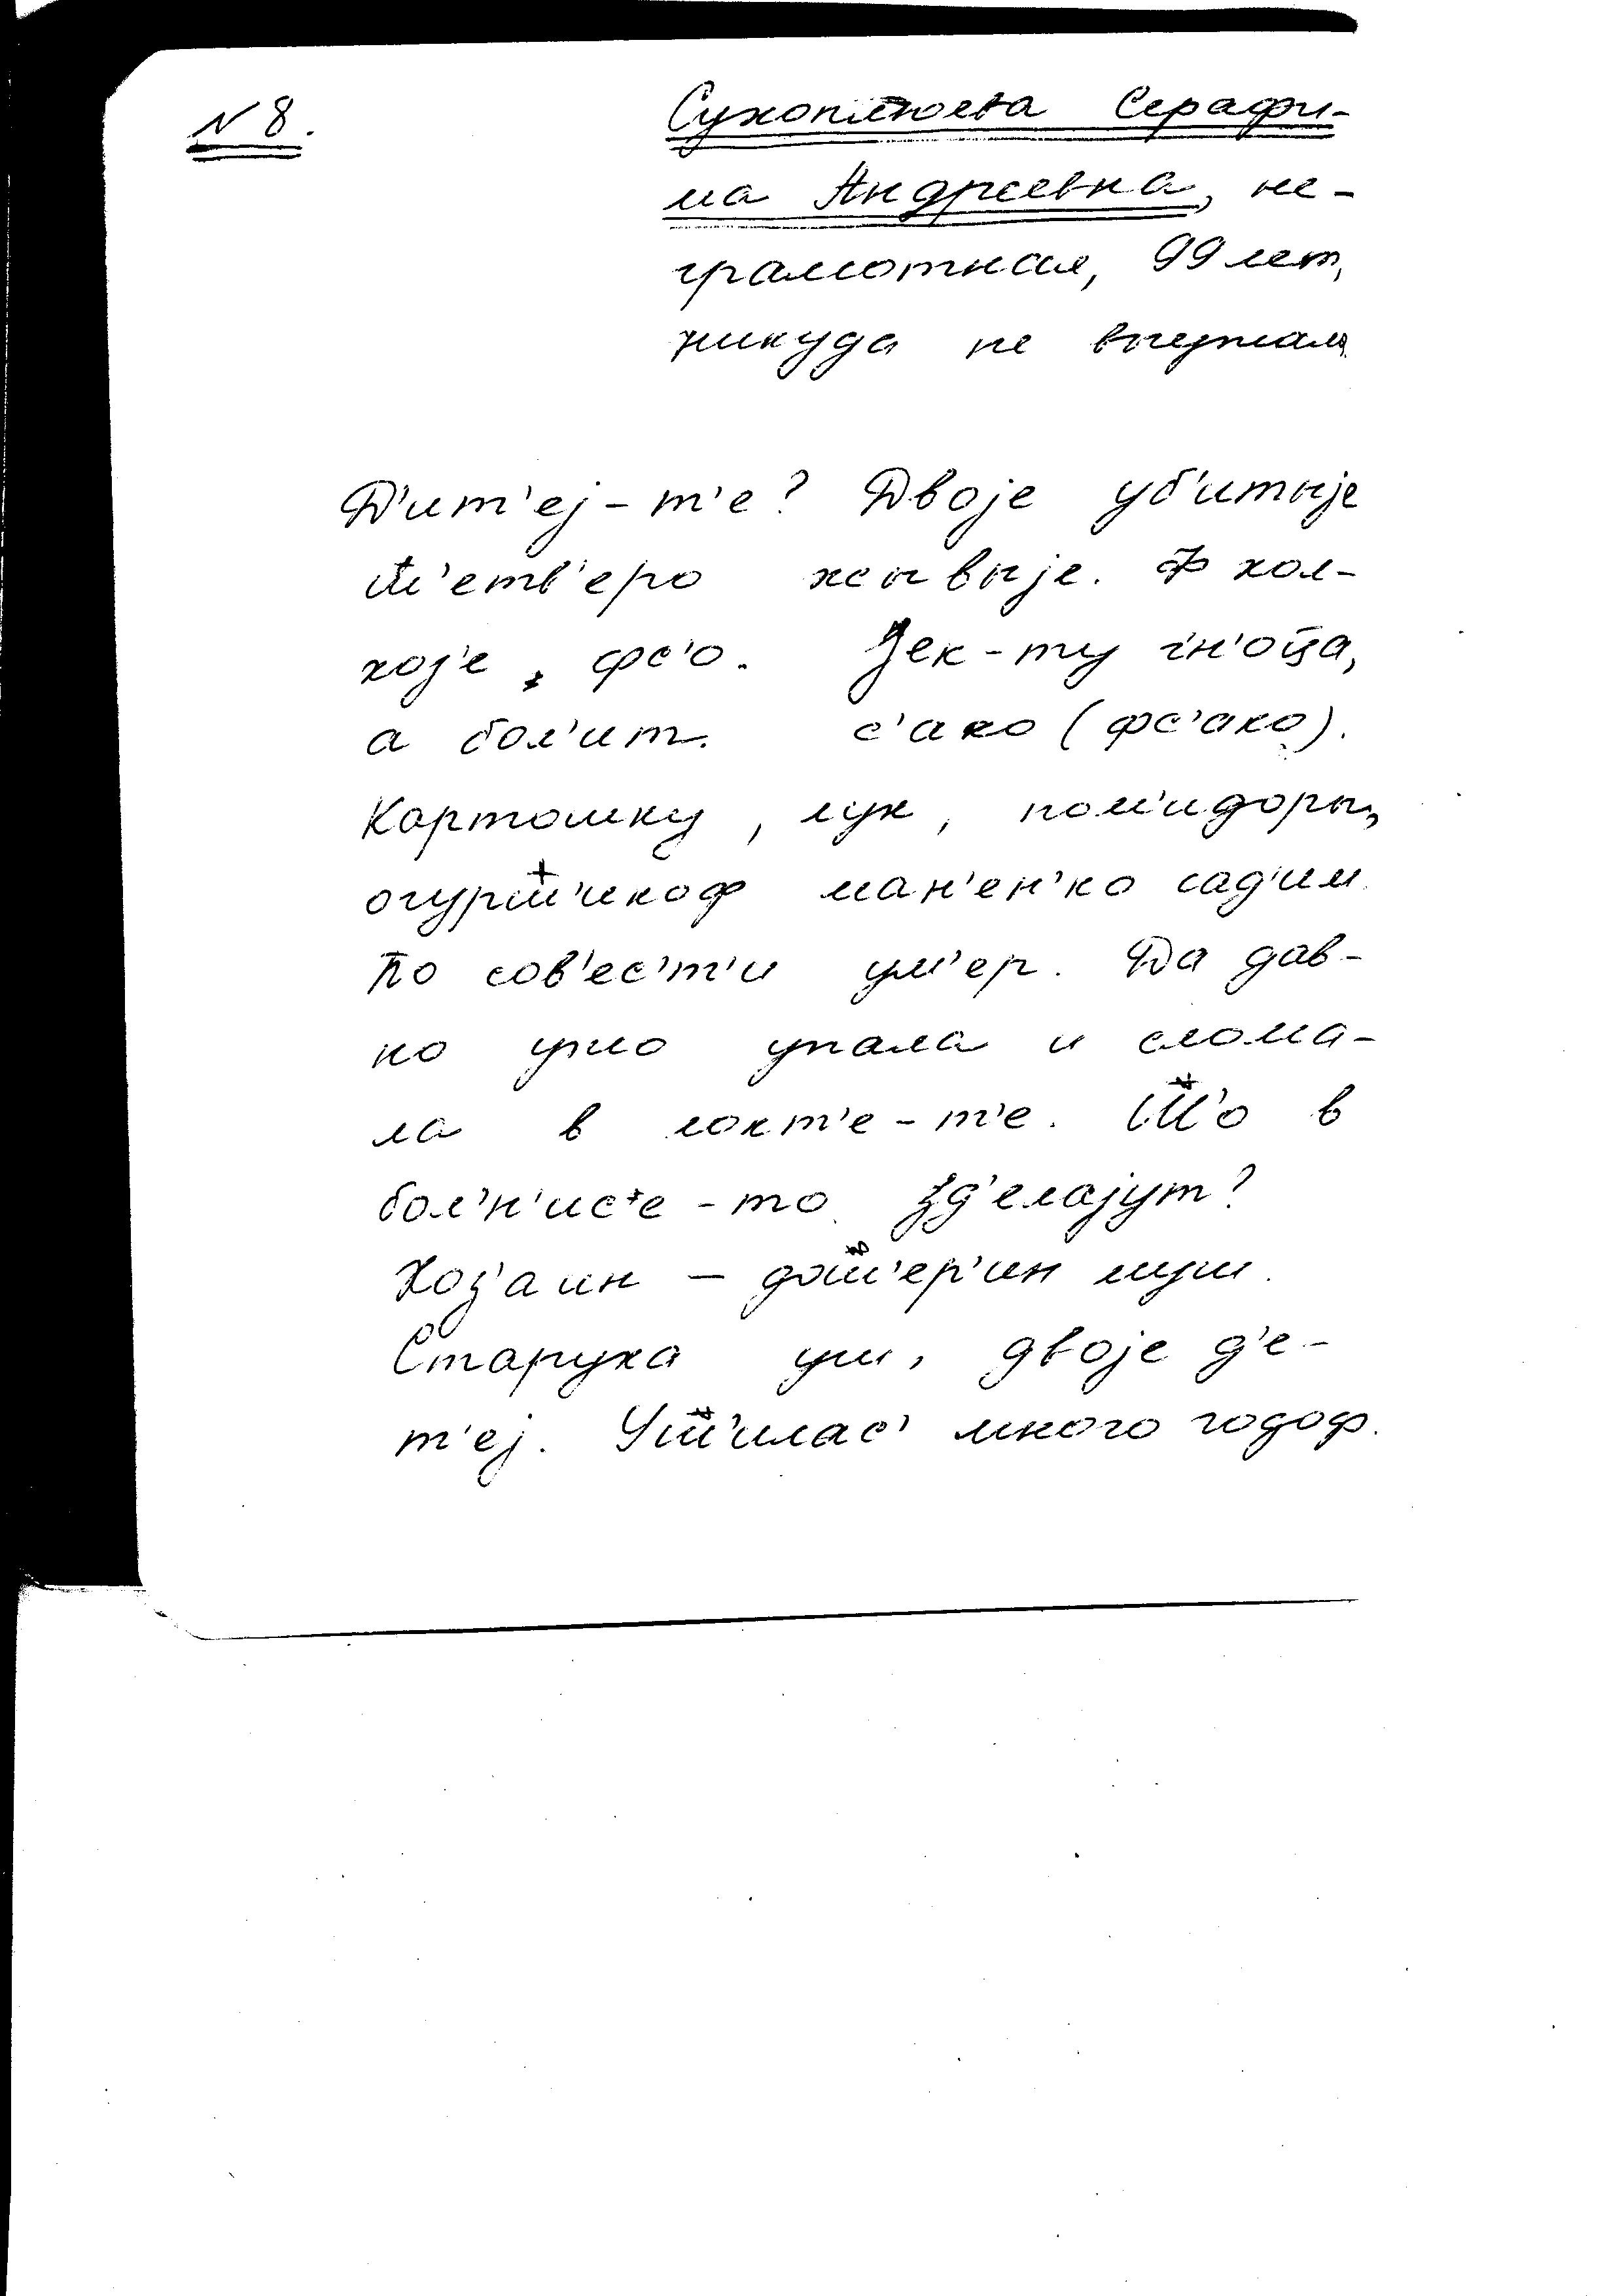 N 8.
Сухоплюева Серафи-
ма Андреевна, не-
грамотная, 99 лет,
никуда не выезжала
Д'ит'еј-т'е? Двоје уб'итыје
Ш'етв'еро жывыје. Ф кол-
хоз'е, фс'о. Зек-ту гн'оца,
а бол'ит. с'ако (фс'ако).
Картошку, лук, пом'идоры,
огурш'икоф ман'ен'ко сад'им.
По сов'ес'т'и ум'ер. Да дав-
но ужо упала и слома-
ла в локт'е-т'е. Ш'о в
бол'н'ис'е-то зд'елајут?
Хоз'аин – дош'ер'ин муш.
Старуха уш, двоје д'е-
т'еј. Уш'илас' много годоф.